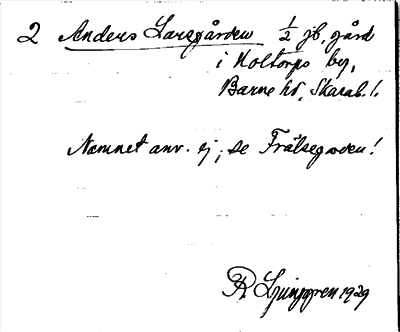 2 Anders Larsgården 1/2 jb. gård
i Holtorps by,
Barne hd, Skarab. l.
Namnet anv. ej; se Frälsegården!
R Ljunggren 1929